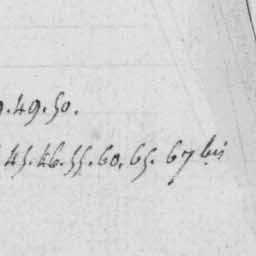 9.49.50.
45.46.55.60.65.67 bis